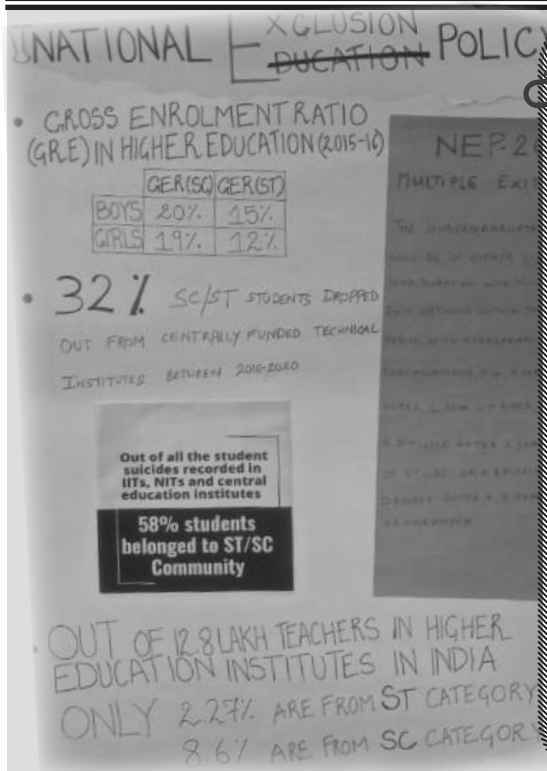 NATIONAL EXCLUSION POLICY
EDUCATION
• GROSS ENROLMENT RATIO
(GRE) IN HIGHER EDUCATION (2015-16)
GER(SC) GER(ST)
BOYS 20% 15%
GIRLS 19% 12%
• 32% SC/ST STUDENTS DROPPED
OUT FROM CENTRALLY FUNDED TECHNICAL
INSTITUTES BETWEEN 2010-2020
Out of all the student
suicides recorded in
IITs, NITs and central
education institutes
58% students
belonged to ST/SC
Community
NEP-2
MULTIPLE EXIT
THE UNDERGRADUATE
WILL BE OF EITHER
AFTER
A DIPLOMA AFTER 2
OF STUDY, OR A
DEGREE AFTER A 3
PROGRAMME
• OUT OF 12.8 LAKH TEACHERS IN HIGHER
EDUCATION INSTITUTES IN INDIA
ONLY 2.27% ARE FROM ST CATEGORY
8.6% ARE FROM SC CATEGORY